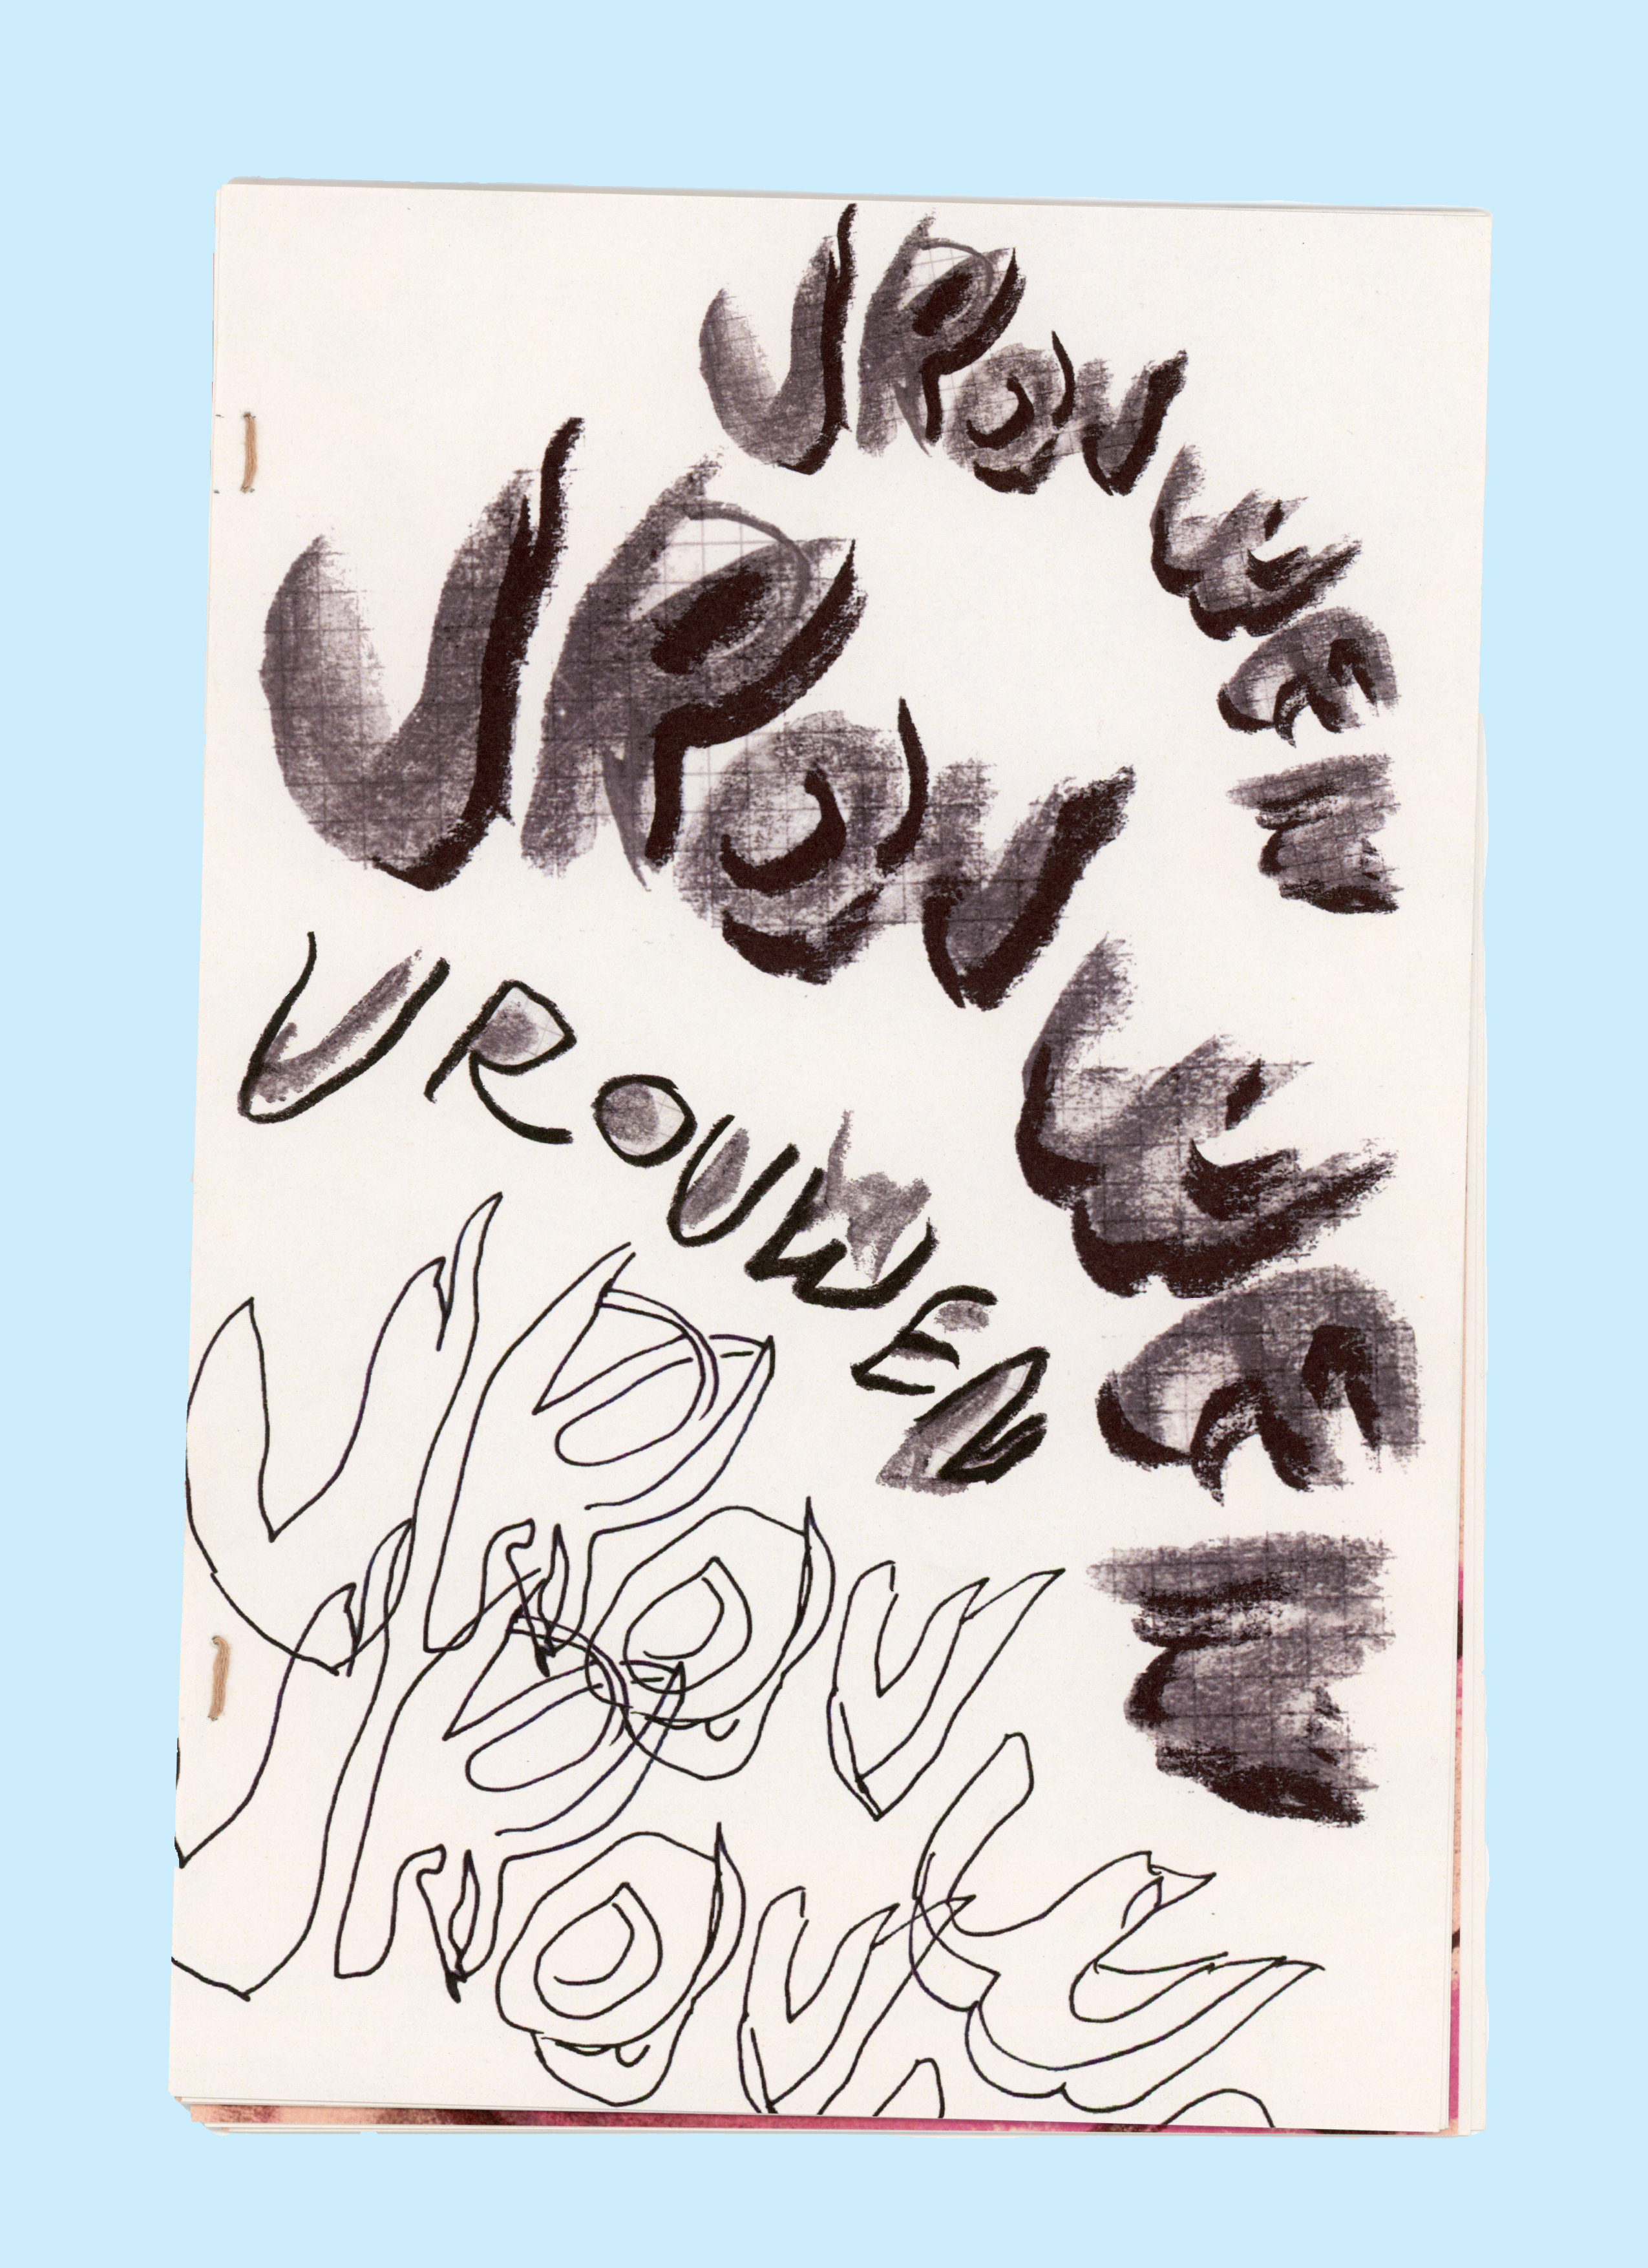 VROUWEN
VROUWEN
VROUWEN
VROUW
VROU